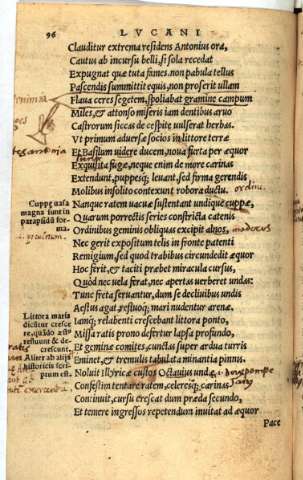 96 LVCANI
Clauditur extrema residens Antonius ora,
Cautus ab incursu belli, si sola recedat
Expugnat quæ tuta fames. non pabula tellus
Pascendis summittit equis, non proserit ullam
Flaua ceres segetem, spoliabat gramine campum
Miles, & attonso miseris iam dentibus aruo
Castrorum siccas de cespite uulserat herbas.
Vt primum aduersæ socios in littore terræ
Et Basilum uidere ducem, noua furta per æquor
Exquisita fugæ, neque enim de more carinas
Extendunt, puppesq; leuant, sed firma gerendis
Molibus insolito contexunt robora ductu.
Nanque ratem uacuæ sustentant undique cuppæ,
Quarum porrectis series constricta catenis
Ordinibus geminis obliquas excipit alnos,
Nec gerit expositum telis in fronte patenti
Remigium, sed quod trabibus circundedit æquor
Hoc ferit, & taciti præbet miracula cursus,
Quòd nec uela ferat, nec apertas uerberet undas:
Tunc freta seruantur, dum se decliuibus undis
Aestus agat, refluoq; mari nudentur arenæ.
Iamq; relabenti crescebant littora ponto.
Missa ratis prono defertur lapsa profundo,
Et geminæ comites, cunctas super ardua turris
Eminet, & tremulis tabulata minantia pinnis.
Noluit Illyricæ custos Octauius undæ
Confestim tentare ratem, celeresq; carinas
Continuit, cursu crescat dum præda secundo,
Et temere ingressos repetendum inuitat ad æquor
Pace
Cuppæ uasa
magna sunt in
parapsidis for-
ma.
Littora maria
dicütur cresce
re, quãdo æstu
refluunt & de
crescunt.
Aliter ab aliis
historicis scri-
ptum est.